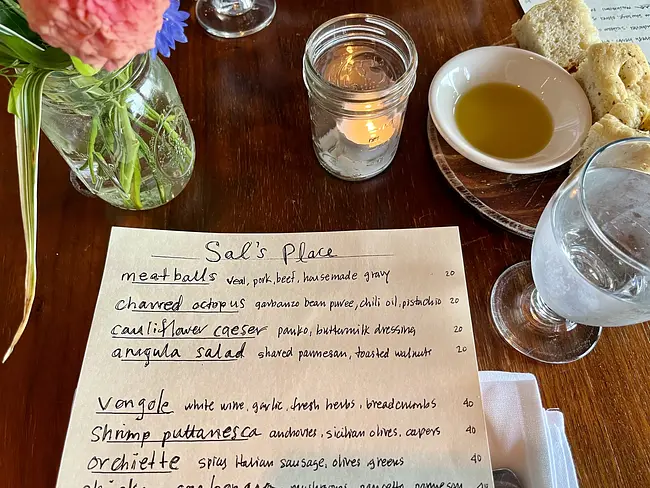 Sal's Place
meatballs veal, pork, beef, housemade gravy 20
charred octopus garbanzo bean puree, chili oil, pistachio 20
cauliflower caeser panko, buttermilk dressing 20
arugula salad shaved parmesan, toasted walnuts 20
Vongole white wine, garlic, fresh herbs, breadcrumbs 40
Shrimp puttanesca anchovies, sicilian olives, capers 40
orchiette spicy Italian sausage, olives greens 40
mushrooms, pancetta, parmesan